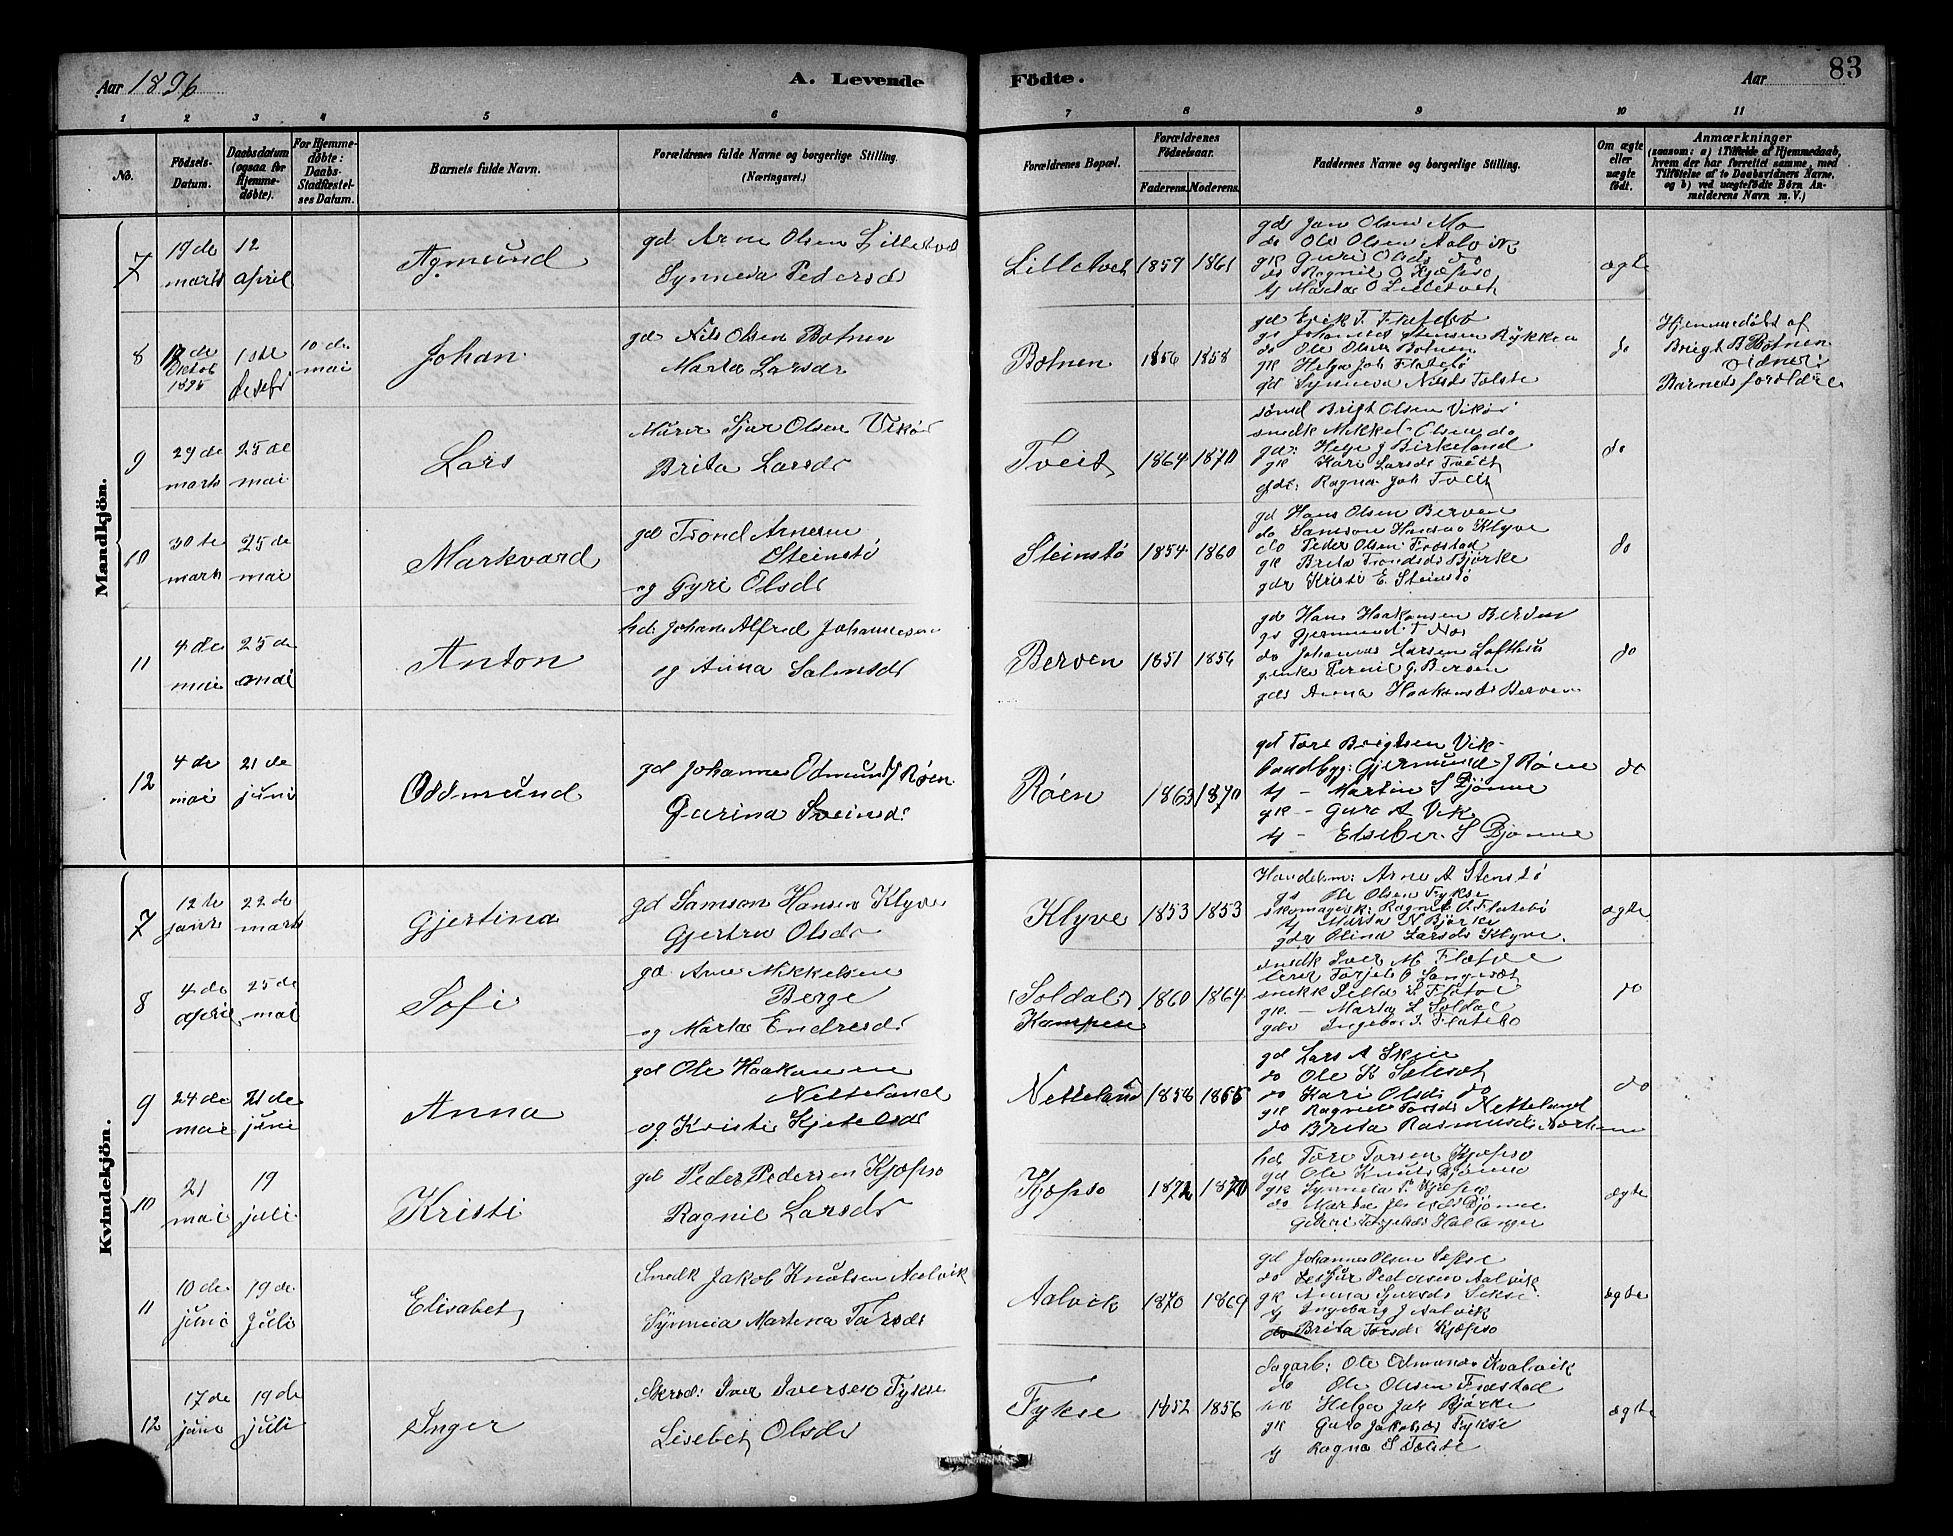 Aar 1896
A. Levende
Födte.
Aar
83
1 2 3 4 5 6 7 8 9 10 11
No.
Födsels-Datum.
Daabsdatum (ogsaa for Hjemmedøbte).
For Hjemmedøbte: Daabs-Stadfæstelses Datum.
Barnets fulde Navn.
Forældrenes fulde Navne og borgerlige Stilling.
(Næringsvei.)
Forældrenes Bopæl.
Forældrenes Fødselsaar.
Faderens. Moderens.
Faddernes Navne og borgerlige Stilling.
Om ægte eller uægte født.
Anmærkninger
(saasom: a) i Tilfælde af Hjemmedaab,
hvem der har forrettet samme, med
Tilføielse af to Daabsvidners Navne,
og b) ved uægtefødte Børn An-
melderens Navn m. V.)
Mandkjön.
7
19 de marts
12 april
Agmund
gd. Arne Olsen Lilletvet
Synneva Pedersdr
Lilletvet
1859 1861
gd Jan Olsen Mo
do Ole Olsen Aalvik
gk Guri Olsdr do
ds Ragnil O Kjæpso
Martha O Lilletvet
ægte
8
12 de Oktob 1895
1ste
10 de mai
Johan
gd Nils Olsen Botnen
Marta Larsdr
Botnen
1856 1858
gd Erik T. Flatebø
gs Johannes Stensen Rykken
do Ole Olsen Botnen
gk Helga Joh Flatebø
gd Synneva Nilsdr Tolste
do
Hjemmedøbt af
Brigt B Botnen
vidner:
Barnets forældre
9
29 de marts
25 de mai
Lars
Murer Sjur Olsen Vikør
Brita Larsdr
Tveit
1864 1870
Brigt Olsen Vikør
snedk Mikkel Olsen do
gd: Helge J Birkeland
gk Kari Larsdr Tveit
gdt: Ragna Joh Tveit
do
10
30 te marts
25 de mai
Markvard
gd Trond Arnesen
Steinstø
og Gyri Olsdr
Steinstø
1854 1860
gd Hans Olsen Berven
do Samson Hansen Klyve
do Peder Olsen Fræstad
gk Brita Trondsdr Bjørke
gdr Kristi E. Steinstø
do
11
4 de mai
25 de mai
Anton
hd: Johan Alfred Johannesen
og Anna Salmsdr
Berven
1851 1856
gd Hans Haakonsen Berven
gs Gjermund T Næs
do Johannes Larsen Lofthus
genke Pernil G. Berven
gdr Anna Haakonsdr Berven
do
12
4 de mai
21 de juni
Oddmund
gd Johannes Odmunds Røen
Gurina Sveinsdr
Røen
1863 1870
gd Tore Brigtsen Vik
Landbyg: Gjermund J Røen
tj — Martin S Djønne
gk — Guro A Vik
tj — Elseber S Djønne
do
Kvindekjön.
7
12 te
22 de marts
Gjertina
gd Samson Hansen Klyve
Gjertru Olsdr
Klyve
1853 1853
Handelsm: Arne A Stenstø
gs Ole Olsen Fykse
skomagerk: Ragnil O. Flatebø
tj Marta N Bjørke
gdr Olina Larsdr Klyve.
ægte
8
4 de april
25 de mai
Sofi
gd Arne Mikkelsen
Berge
og Marta Endresdr
(Soldal)
Kampese
1860 1864
snedk Iver M. Flatebø
lærer Torjels O Sangesæt
snekk
gk — Marta L Soldal
gdr Ingebor I. Flatebo
do
9
24 de mai
21 de juni
Anna
gd Ole Haakonsen
Netteland
og Kristi Kjetelsdr
Netteland
1858 1866
gd Lars A Skeie
do Ole K Sælesæt
do Kari Olsdr do
gk Ragnile Torsdr Netteland
do Brita Rasmusdr
do
10
21 mai
19 juli
Kristi
gd Peder Pedersen Kjæpso
Ragnil Larsdr
Kjæpso
1872 1870
hd Tore Torsen Kjæpso
gd Ole Knuts Djønno
gk Synneva P. Kjæpso
do Marta Djønne
ægte
11
10 de juni
19 de Juli
Elisabet
Snedk Jakob Knutsen Aalvik
Synneva Martina Torsdr
Aalvik
1870 1869
gd Johannes Olsen Sekse
do Sjur Pedersen Aalvik
gk Anna Sjursdr Sekse
tj Ingeborg J Aalvik
do Brita Torsdr Kjæpso
ægte
12
17 de juni
19 de juli
Inger
Skræd: Iver Iversen Fykse
Lisebet Olsdr
Fykse
1852 1856
Sagarb: Ole Odmunds Kvalvik
do Ole Olsen Fræstad
hk Helga Joh Bjørke
gk Guro Jakobsdr Fykse
tj Ragna S Tolste
ægte